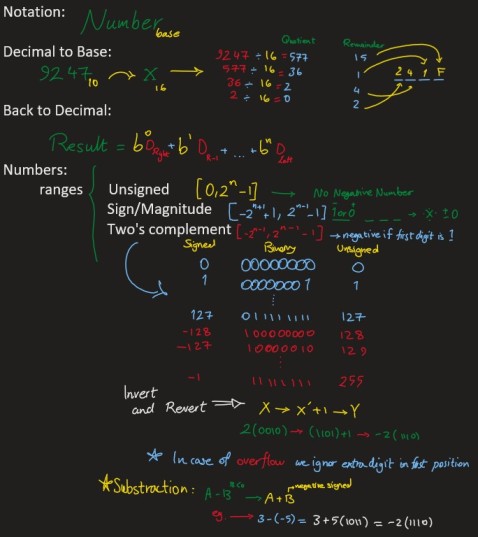 Notation: Number base
Decimal to Base: Quotient Remainder
9247 10 → X 16 → 9247 ÷ 16 = 577 15
577 ÷ 16 = 36 1 2 4 1 F
36 ÷ 16 = 2 4
2 ÷ 16 = 0 2
Back to Decimal:
Result = b⁰D Right + b¹D R-1 + ... + bⁿD Left
Numbers:
ranges
Unsigned [0, 2ⁿ-1] → No Negative Number
Sign/Magnitude [-2ⁿ⁺¹+1, 2ⁿ⁻¹-1] 1 or 0 _ _ _ → x. ±0
Two's complement [-2ⁿ⁻¹, 2ⁿ⁻¹-1] → negative if first digit is 1
Signed Binary Unsigned
0 00000000 0
1 00000001 1
⋮
127 01111111 127
-128 10000000 128
-127 10000010 129
⋮
-1 11111111 255
Invert
and Revert ⇒ X → X'+1 → Y
2(0010) → (1101)+1 → -2(1110)
* In case of overflow we ignor extra digit in fist position
* Substraction: A-B → A+B negative signed
eg. → 3-(-5) = 3+5(1011) = -2(1110)